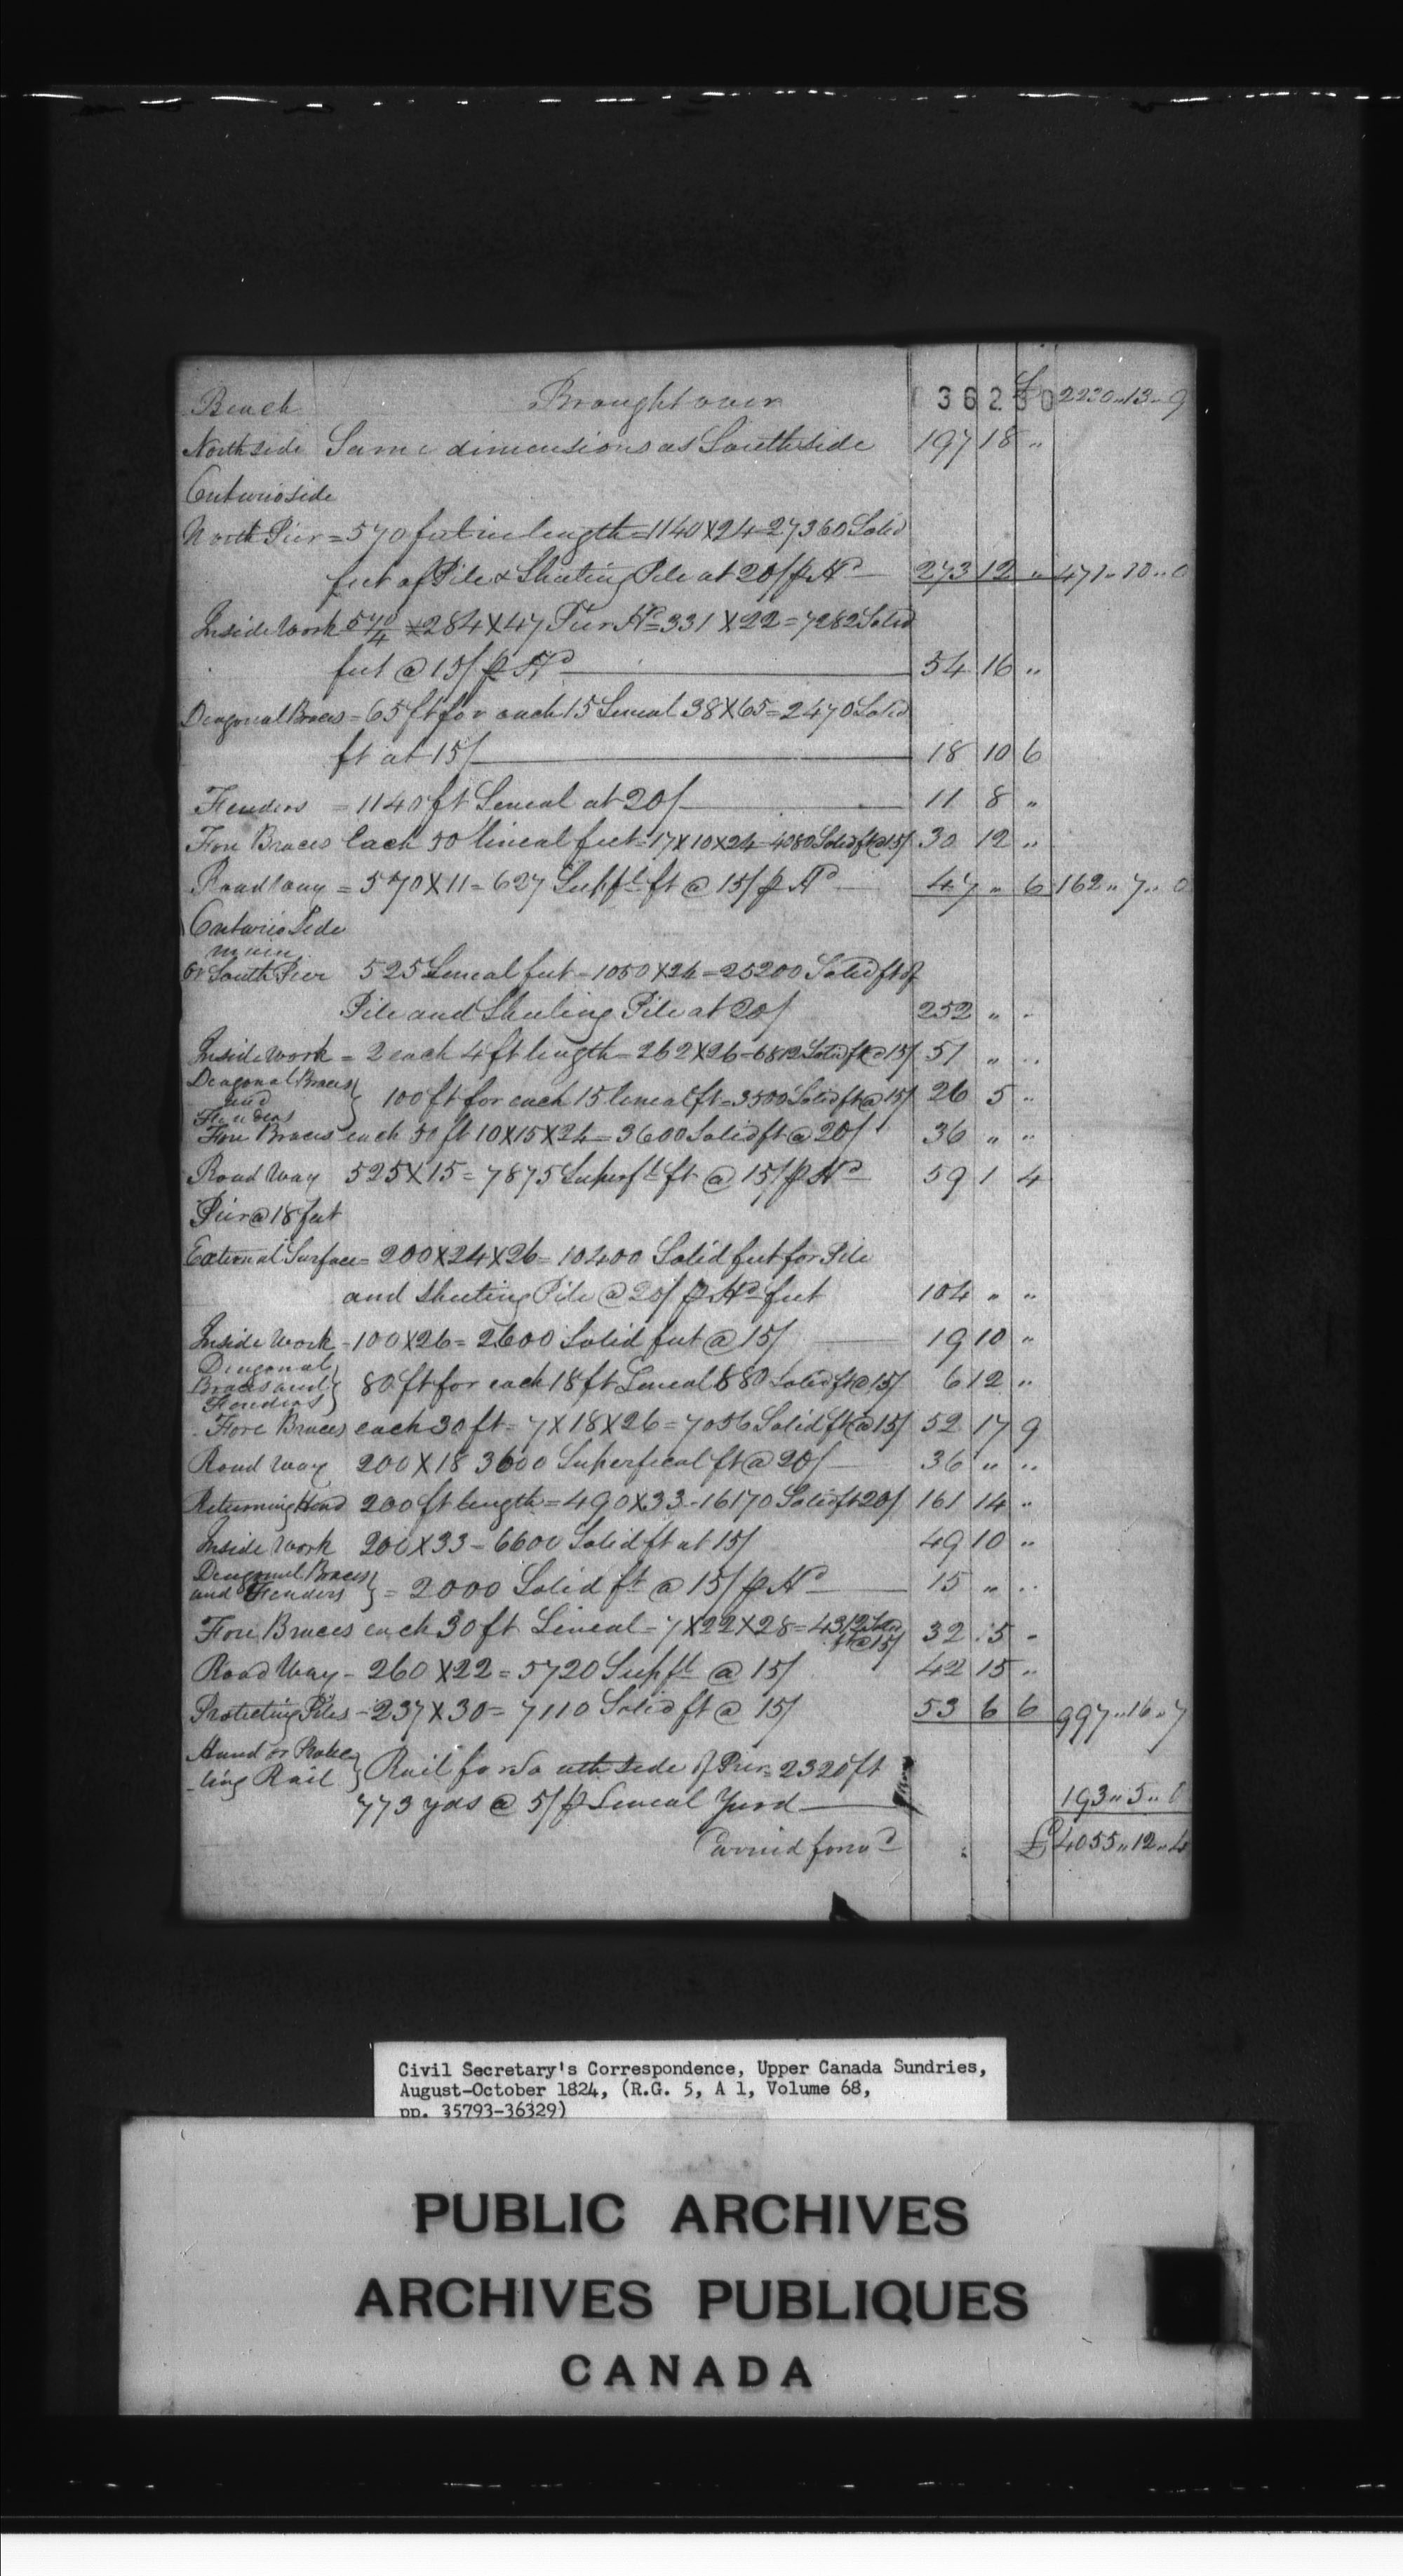 Beach Brought over 36250 £ 2230,,13,,9
North side Same dimensions as South side 197 18 ,,
Ontario side
North Pier = 570 feet in length = 1140 X 24 = 27360 Solid
feet of Pile & Sheeting Pile at 20/ p Hd 273 12 ,, 471,,10,,0
Inside Work 570/4 X 284 X 47 Pier Hd = 331 X 22 = 7282 Solid
feet @ 15/ p Hd 54 16 ,,
Diagonal Braces = 65 ft for each 15 Lineal 38 X 65 = 2470 Solid
ft at 15/ 18 10 6
Fenders = 1140 ft Lineal at 20/ 11 8 ,,
Fore Braces Each 30 lineal feet = 17 X 10 X 24 = 4080 Solid ft @ 15/ 30 12 ,,
Roadway = 570 X 11 = 627 Supfl ft @ 15/ p Hd 47 ,, 6 162,,7,,0
Ontario Side
main
or South Pier 525 Lineal feet = 1050 X 24 = 25200 Solid ft of
Pile and Sheeting Pile at 20/ 252 ,, ,,
Inside work = 2 each 4 ft length = 262 X 26 = 6812 Solid ft @ 15/ 51 ,, ,,
Diagonal Braces
and } 100 ft for each 15 lineal ft = 3500 Solid ft @ 15/ 26 5 ,,
Fenders
Fore Braces each 30 ft 10 X 15 X 24 = 3600 Solid ft @ 20/ 36 ,, ,,
Road Way 525 X 15 = 7875 Superfl ft @ 15/ p Hd 59 1 4
Pier @ 18 feet
External Surface = 200 X 24 X 26 = 10400 Solid feet for Pile
and Sheeting Pile @ 20/ p Hd feet 104 ,, ,,
Inside Work = 100 X 26 = 2600 Solid feet @ 15/ 19 10 ,,
Diagonal
Braces and } 80 ft for each 18 ft Lineal 880 Solid ft @ 15/ 6 12 ,,
Fenders
Fore Braces each 30 ft = 7 X 18 X 26 = 7056 Solid ft @ 15/ 52 17 9
Road Way 200 X 18 3600 Superficial ft @ 20/ 36 ,, ,,
Returning Head 200 ft length = 490 X 33 = 16170 Solid ft 20/ 161 14 ,,
Inside Work 200 X 33 = 6600 Solid ft at 15/ 49 10 ,,
Diagonal Braces
and Fenders } = 2000 Solid ft @ 15/ p Hd 15 ,, ,,
Fore Braces each 30 ft Lineal = 7 X 22 X 28 = 4312 Solid
ft @ 15/ 32 15 -
Road Way - 260 X 22 = 5720 Supfl @ 15/ 42 15 ,,
Protecting Piles - 237 X 30 = 7110 Solid ft @ 15/ 53 6 6 997,,16,,7
Hand or
-ting Rail } Rail for South side of Pier = 2320 ft
773 yds @ 5/ p Lineal Yard 193,,5,,0
Carried forwd £ 4055,,12,,4
Civil Secretary's Correspondence, Upper Canada Sundries,
August-October 1824, (R.G. 5, A 1, Volume 68,
pp. 35793-36329)
PUBLIC ARCHIVES
ARCHIVES PUBLIQUES
CANADA